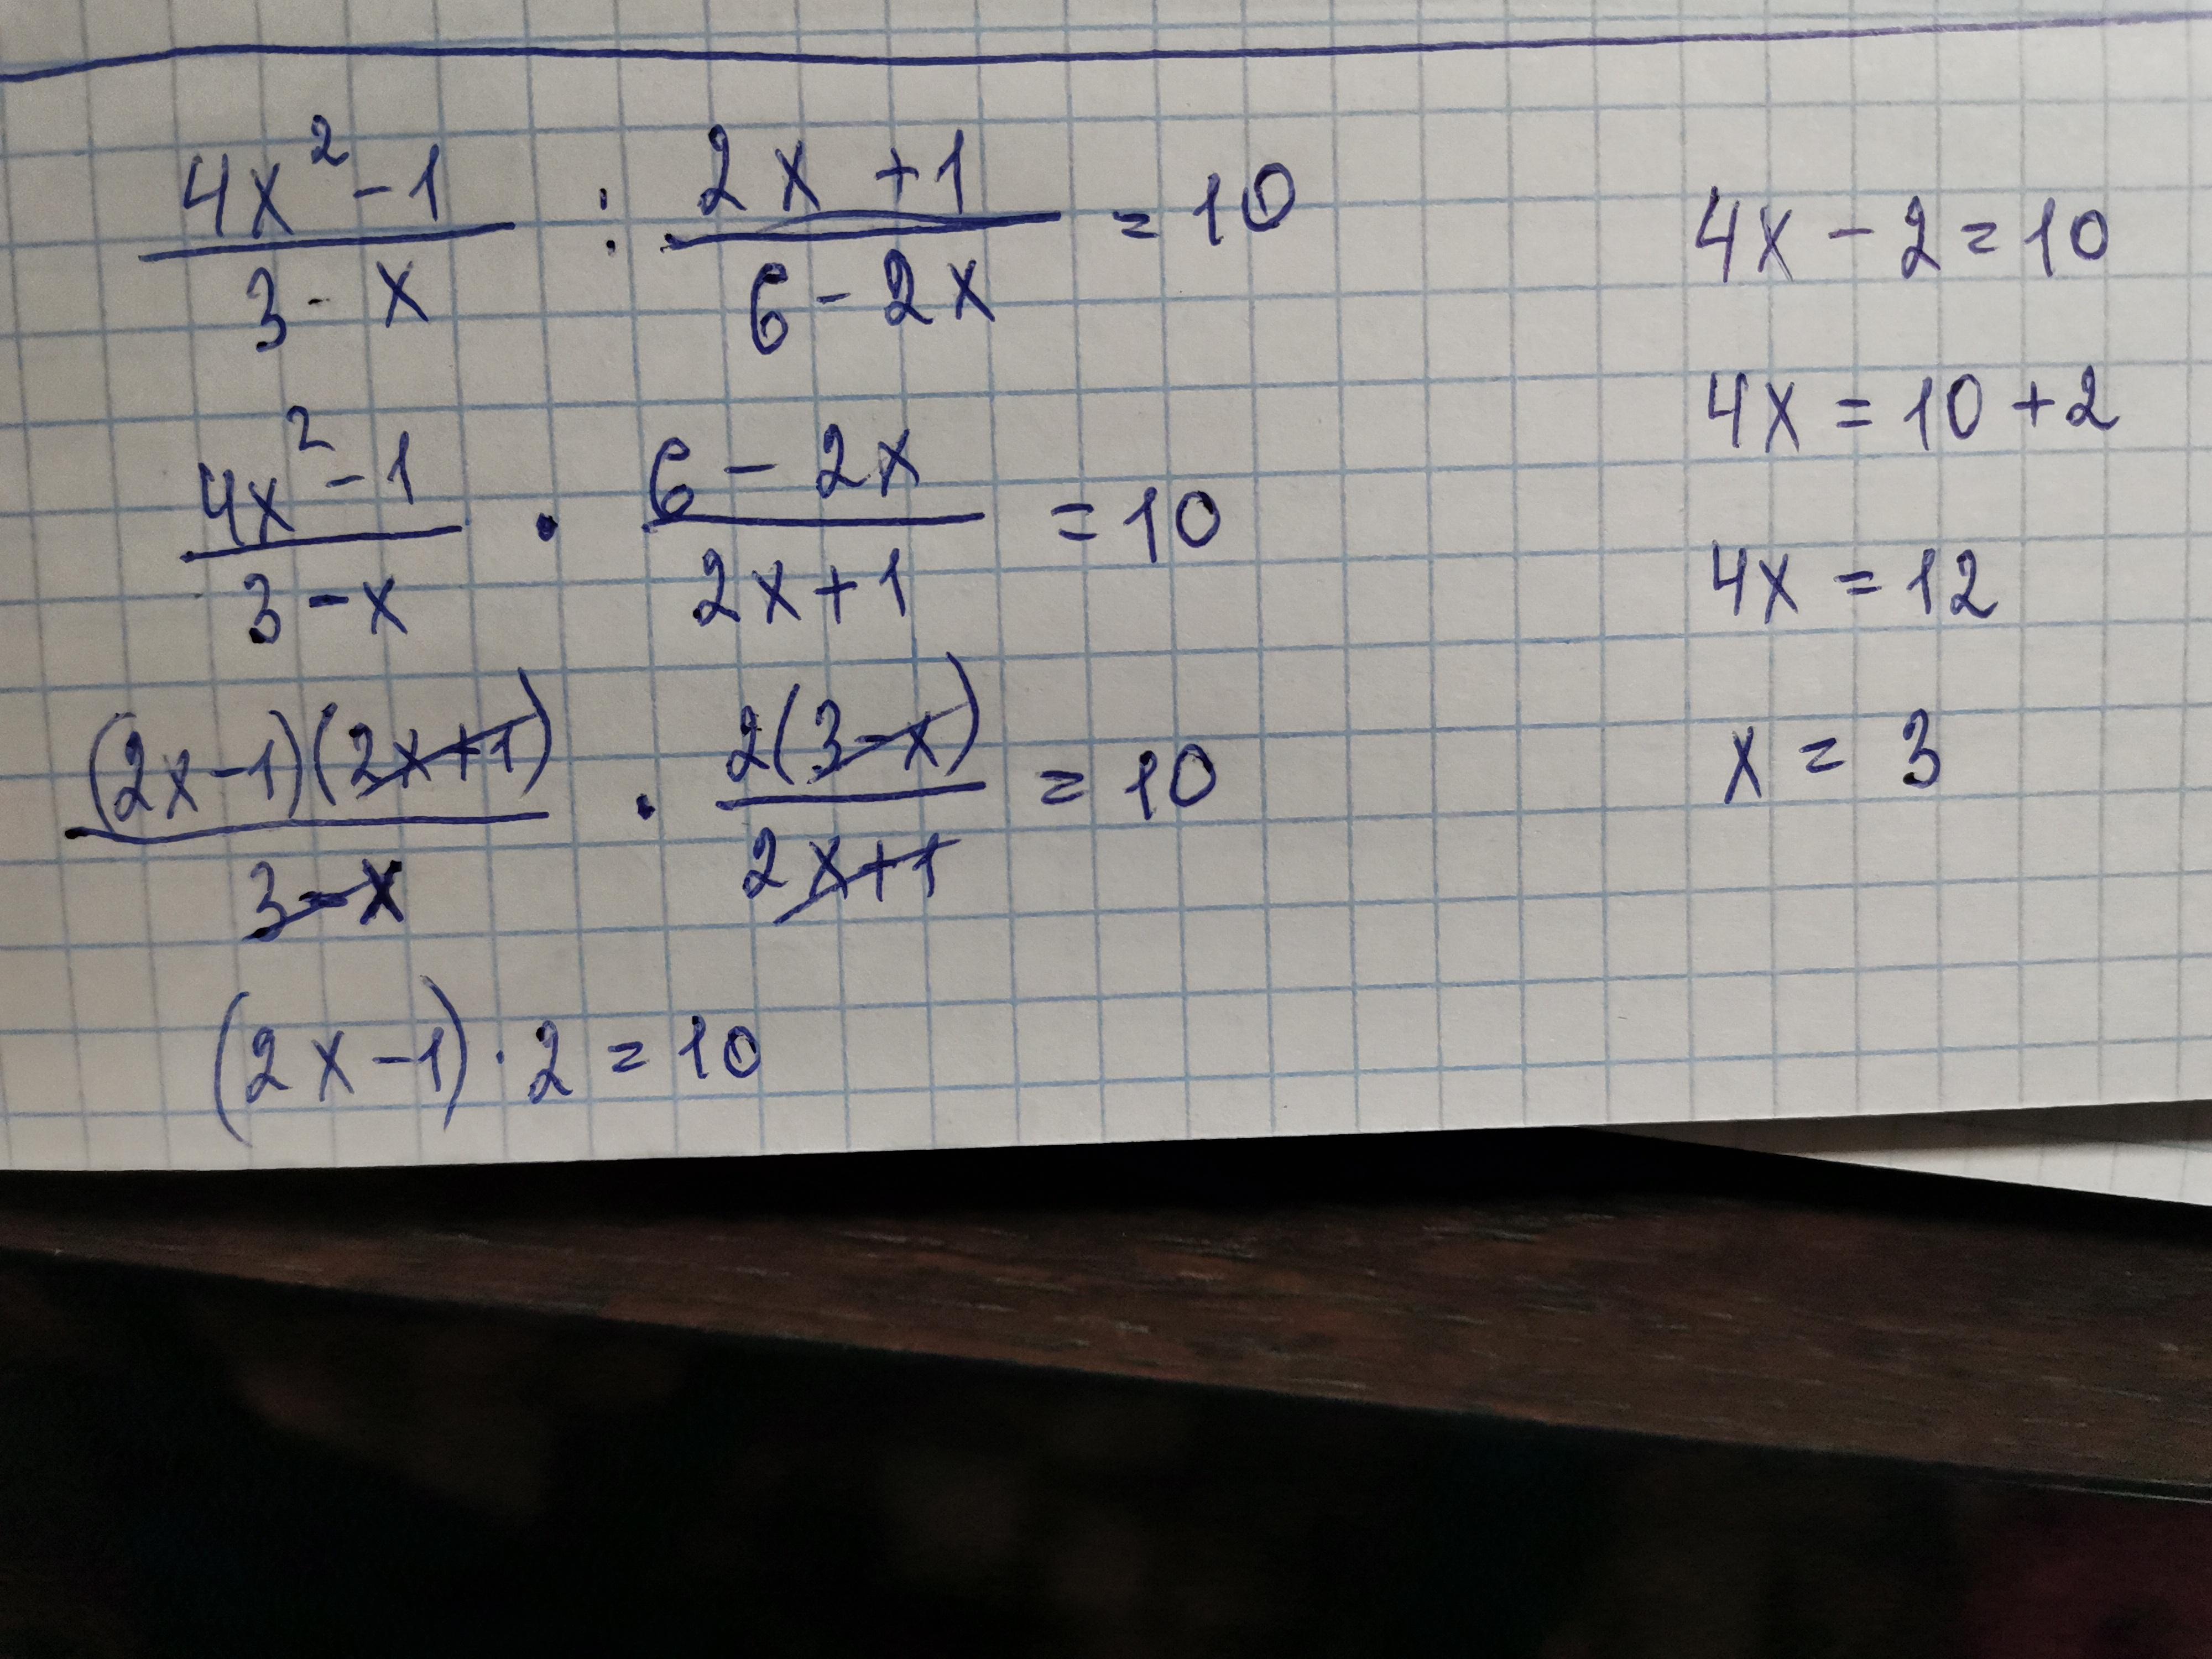 (4x² - 1)/(3 - x) : (2x + 1)/(6 - 2x) = 10
(4x² - 1)/(3 - x) · (6 - 2x)/(2x + 1) = 10
(2x - 1)(2x + 1)/(3 - x) · 2(3 - x)/(2x + 1) = 10
(2x - 1) · 2 = 10
4x - 2 = 10
4x = 10 + 2
4x = 12
x = 3